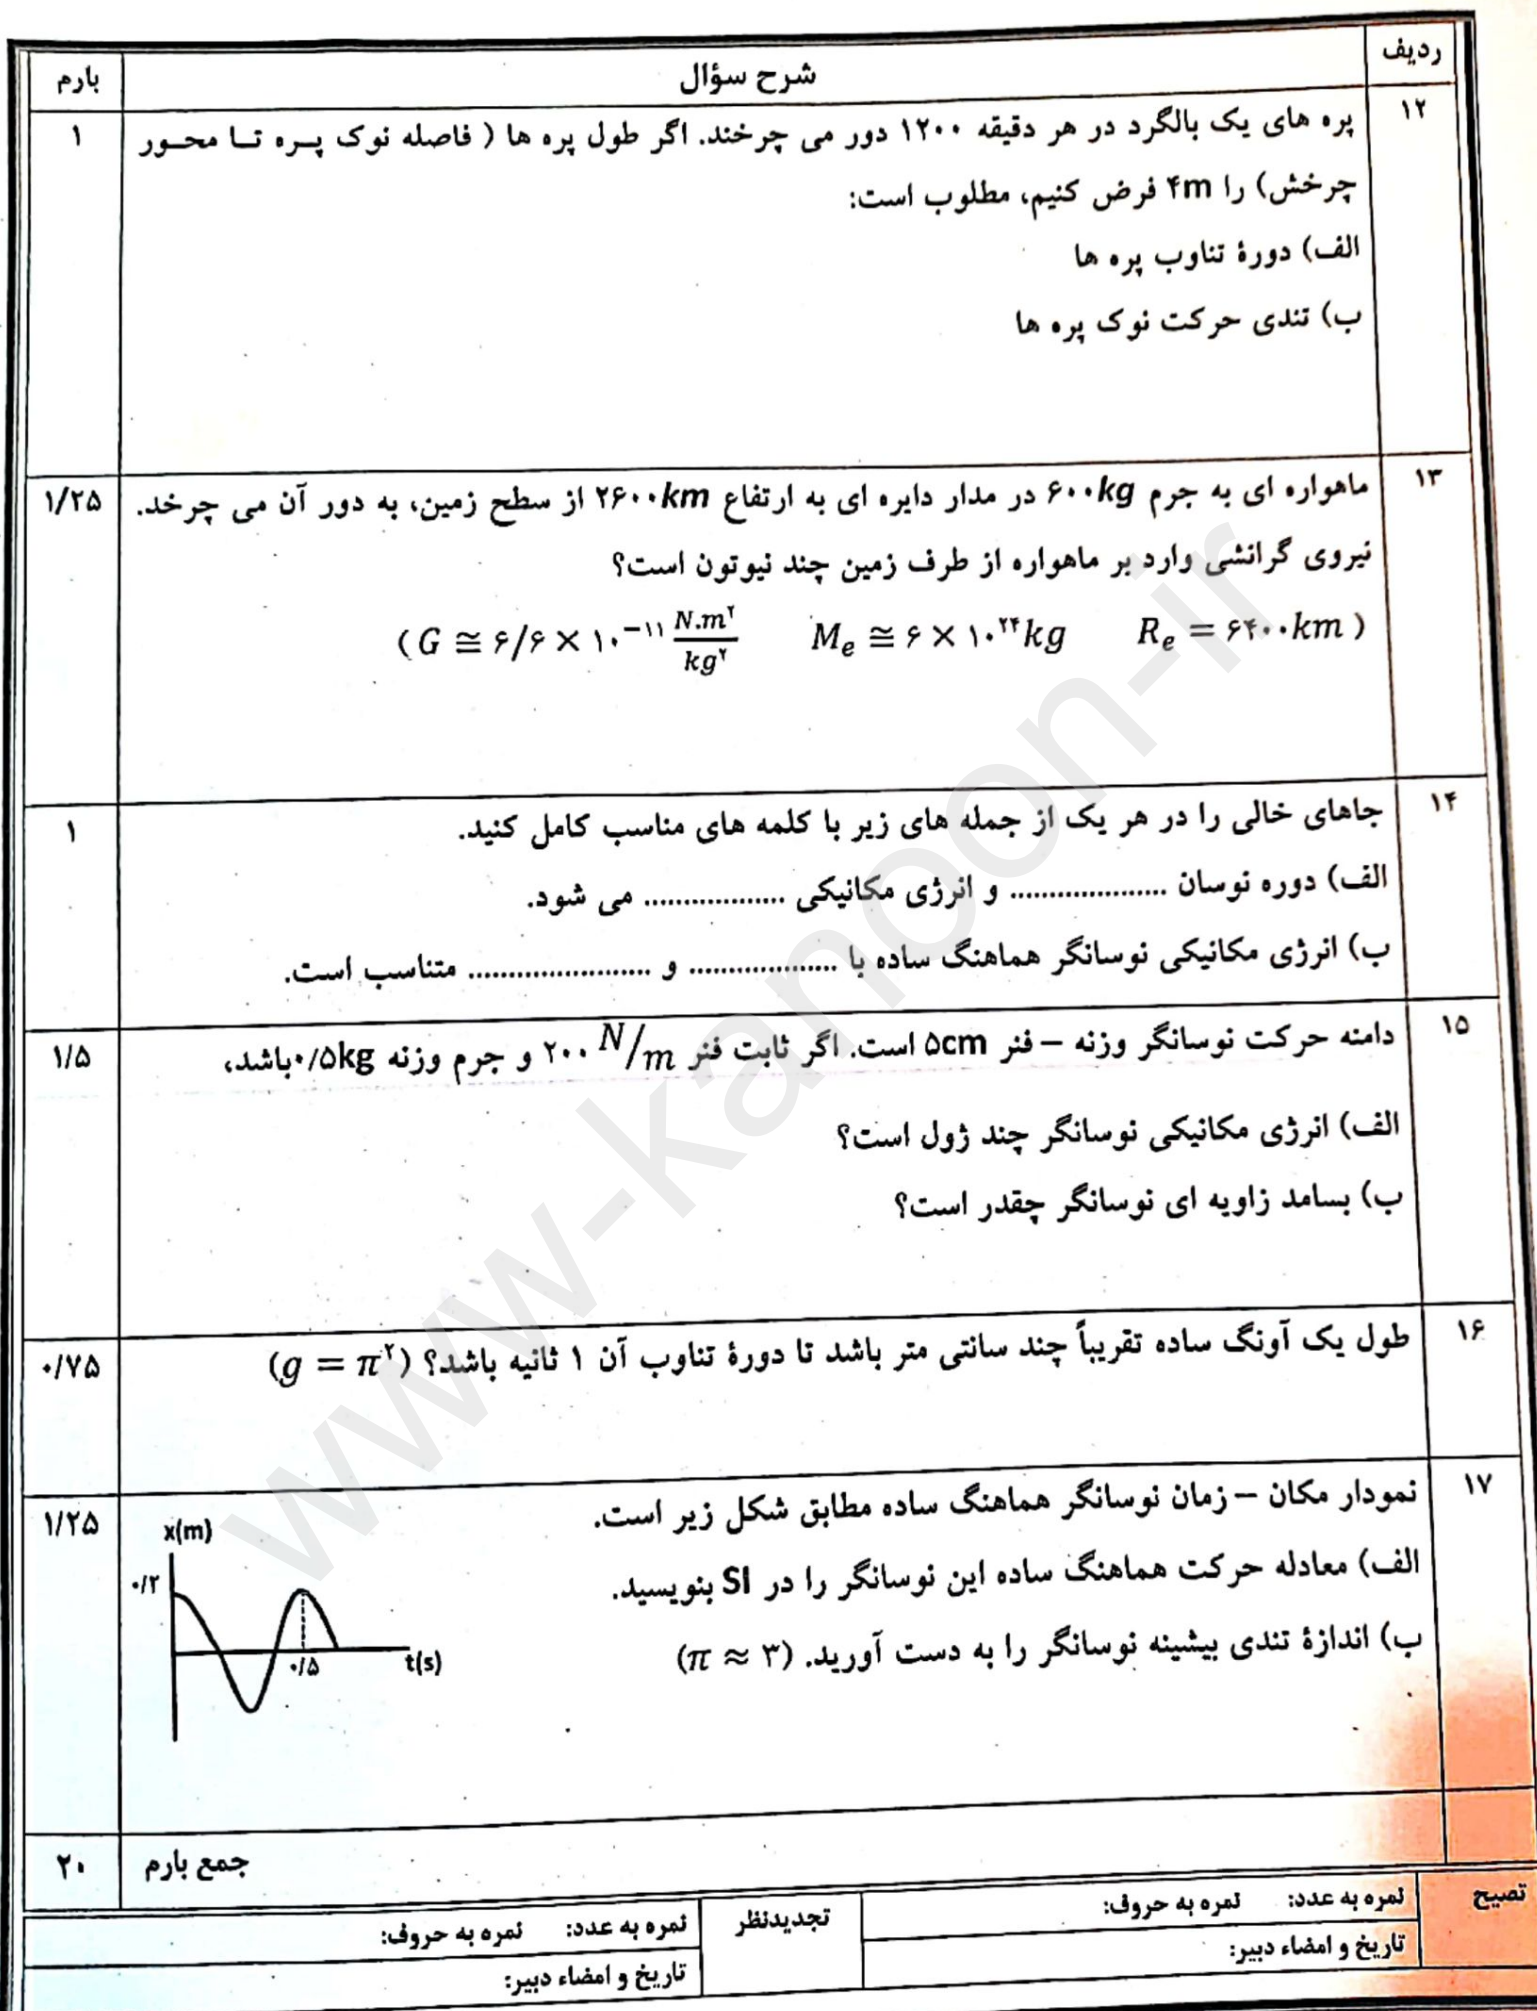 ردیف شرح سؤال بارم
۱۲ پره های یک بالگرد در هر دقیقه ۱۲۰۰ دور می چرخند. اگر طول پره ها ( فاصله نوک پـره تـا محـور ۱
چرخش) را ۴m فرض کنیم، مطلوب است:
الف) دورۀ تناوب پره ها
ب) تندی حرکت نوک پره ها
۱۳ ماهواره ای به جرم ۶۰۰kg در مدار دایره ای به ارتفاع ۲۶۰۰km از سطح زمین، به دور آن می چرخد. ۱/۲۵
نیروی گرانشی وارد بر ماهواره از طرف زمین چند نیوتون است؟
( G ≅ ۶/۶ × ۱۰⁻¹¹ N.m²/kg² M_e ≅ ۶ × ۱۰²⁴ kg R_e = ۶۴۰۰km )
۱۴ جاهای خالی را در هر یک از جمله های زیر با کلمه های مناسب کامل کنید. ۱
الف) دوره نوسان .................... و انرژی مکانیکی .................. می شود.
ب) انرژی مکانیکی نوسانگر هماهنگ ساده با ................... و ....................... متناسب است.
۱۵ دامنه حرکت نوسانگر وزنه – فنر ۵cm است. اگر ثابت فنر ۲۰۰ N/m و جرم وزنه ۰/۵kg باشد، ۱/۵
الف) انرژی مکانیکی نوسانگر چند ژول است؟
ب) بسامد زاویه ای نوسانگر چقدر است؟
۱۶ طول یک آونگ ساده تقریباً چند سانتی متر باشد تا دورۀ تناوب آن ۱ ثانیه باشد؟ (g = π²) ۰/۷۵
۱۷ نمودار مکان – زمان نوسانگر هماهنگ ساده مطابق شکل زیر است. ۱/۲۵
الف) معادله حرکت هماهنگ ساده این نوسانگر را در SI بنویسید.
ب) اندازۀ تندی بیشینه نوسانگر را به دست آورید. (π ≈ ۳)
x(m)
۰/۲
۰/۵
t(s)
جمع بارم ۲۰
تصیح نمره به عدد: نمره به حروف: تجدیدنظر نمره به عدد: نمره به حروف:
تاریخ و امضاء دبیر: تاریخ و امضاء دبیر:
www-kanoon-ir